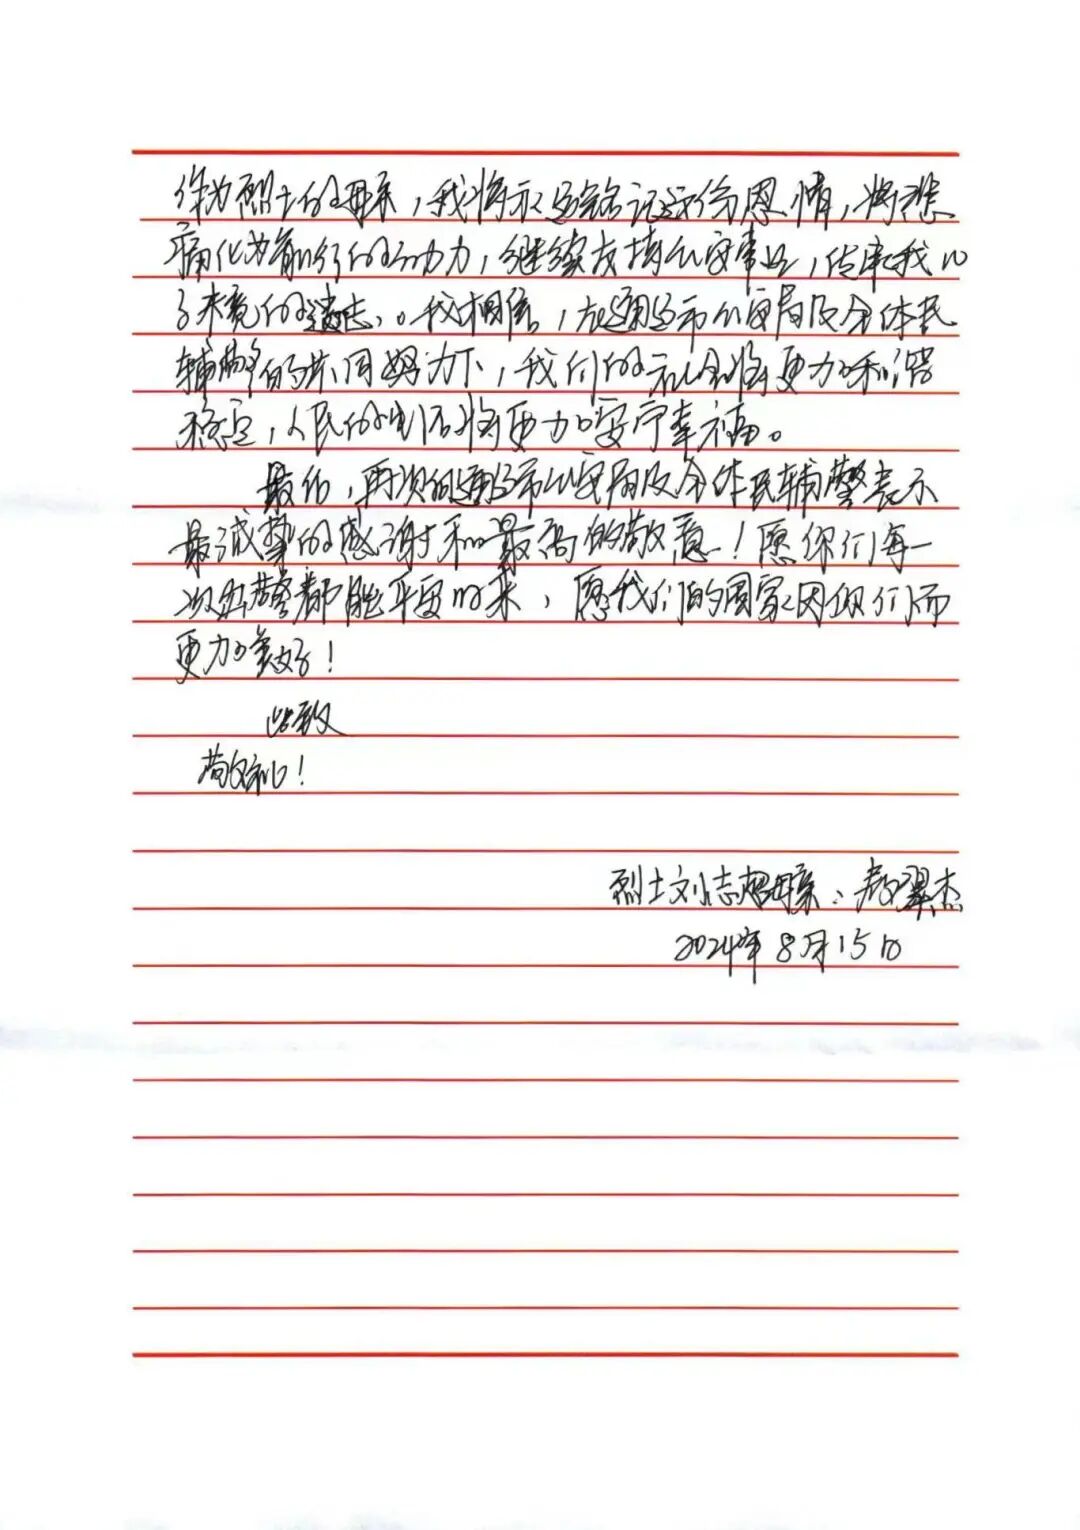 作为烈士的母亲，我将永远铭记这份恩情，将悲
痛化为前行的动力，继续支持公安事业，传承我儿
子未竟的遗志。我相信，在通辽市公安局及全体民
辅警的共同努力下，我们的社会将更加和谐
稳定，人民的生活将更加安宁幸福。
最后，再次向通辽市公安局及全体民辅警表示
最诚挚的感谢和最高的敬意！愿你们每一
次出警都能平安归来，愿我们的国家因你们而
更加美好！
此致
敬礼！
烈士刘志超母亲：杰
2024年8月15日